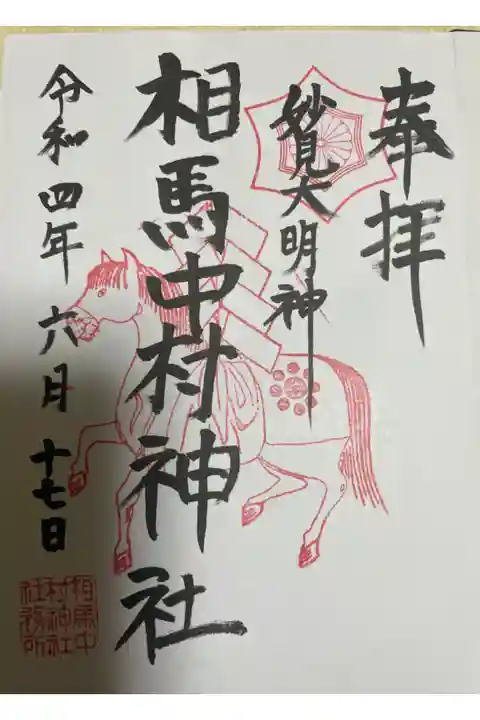 奉拝
妙見大明神
相馬中村神社
令和四年六月十七日
相馬中
村神社
社務所